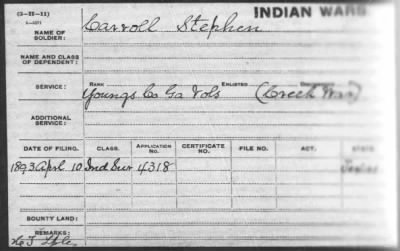 (3-II-11)
INDIAN WARS
NAME OF SOLDIER: Carroll Stephen
NAME AND CLASS OF DEPENDENT:
SERVICE: RANK ENLISTED
Youngs Co Ga Vols (Creek War)
ADDITIONAL SERVICE:
DATE OF FILING. CLASS. APPLICATION NO. CERTIFICATE NO. FILE NO. ACT. STATE
1893 Apl. 10 Ind Sur 4318
BOUNTY LAND:
REMARKS: